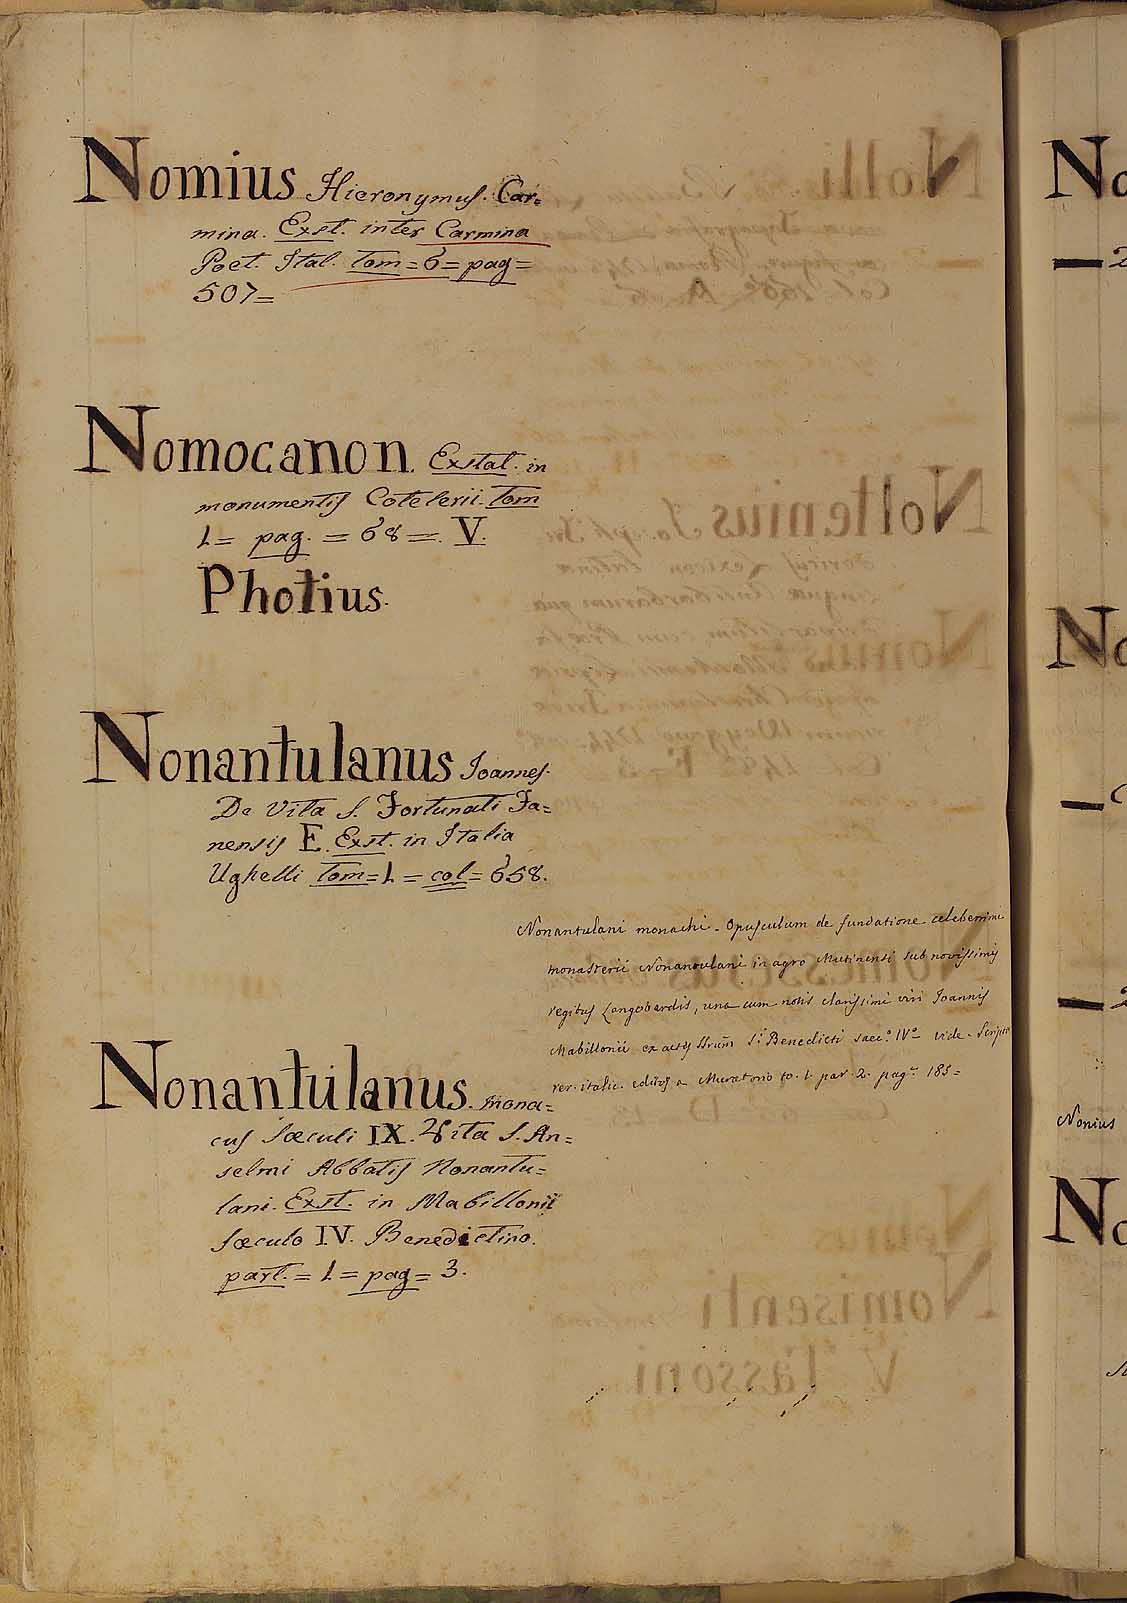 Nomius Hieronymus. Car=
mina. Exst. inter Carmina
Poet. Ital. tom = 6 = pag =
507=
Nomocanon. Exstat. in
monumentis Cotelerii. tom
1 = pag. = 68 =. V.
Photius.
Nonantulanus Joannes.
De Vita S. Fortunati Fa=
nensis E. Exst. in Italia
Ughelli tom = 1 = col = 658.
Nonantulani monachi. Opusculum de fundatione celeberrimi
monasterii Nonantulani in agro Mutinensi sub novissimis
regibus Langobardis, una cum notis clarissimi viri Joannis
Mabillonii ex actis SSrum S.i Benedicti saec.o IV.o vide. Script.
rer. italic. editus a Muratorio to. 1. par. 2. pag.e 185=
Nonantulanus. Mona=
cus Sæculi IX. Vita S. An=
selmi Abbatis Nonantu=
lani. Exst. in Mabillonii
Sæculo IV. Benedictino.
part. = 1 = pag = 3.
No
No
Nonius
No